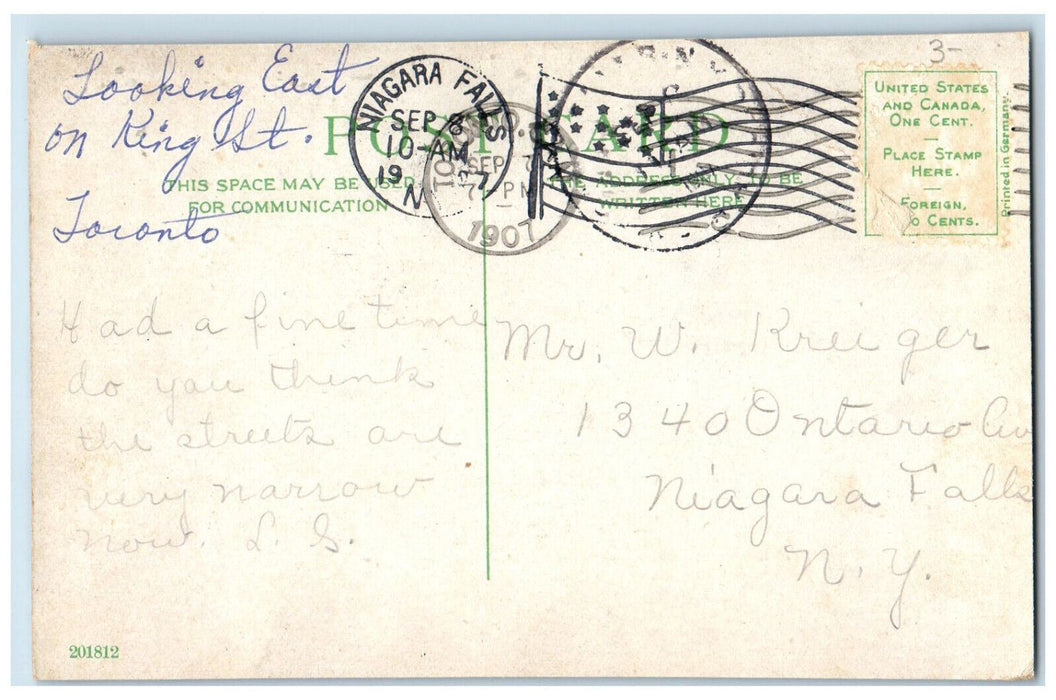 3-
Looking East
on King St.
Toronto
POST CARD
THIS SPACE MAY BE USED
FOR COMMUNICATION
THE ADDRESS ONLY TO BE
WRITTEN HERE
NIAGARA FALLS
SEP 8
10-AM
19 7
N
SEP 7
7 PM
1907
UNITED STATES
AND CANADA,
ONE CENT.
PLACE STAMP
HERE.
FOREIGN,
o CENTS.
Printed in Germany.
Had a fine time
do you think
the streets are
very narrow
now. L. S.
Mr. W. Kreiger
1340 Ontario Av
Niagara Falls
N. Y.
201812